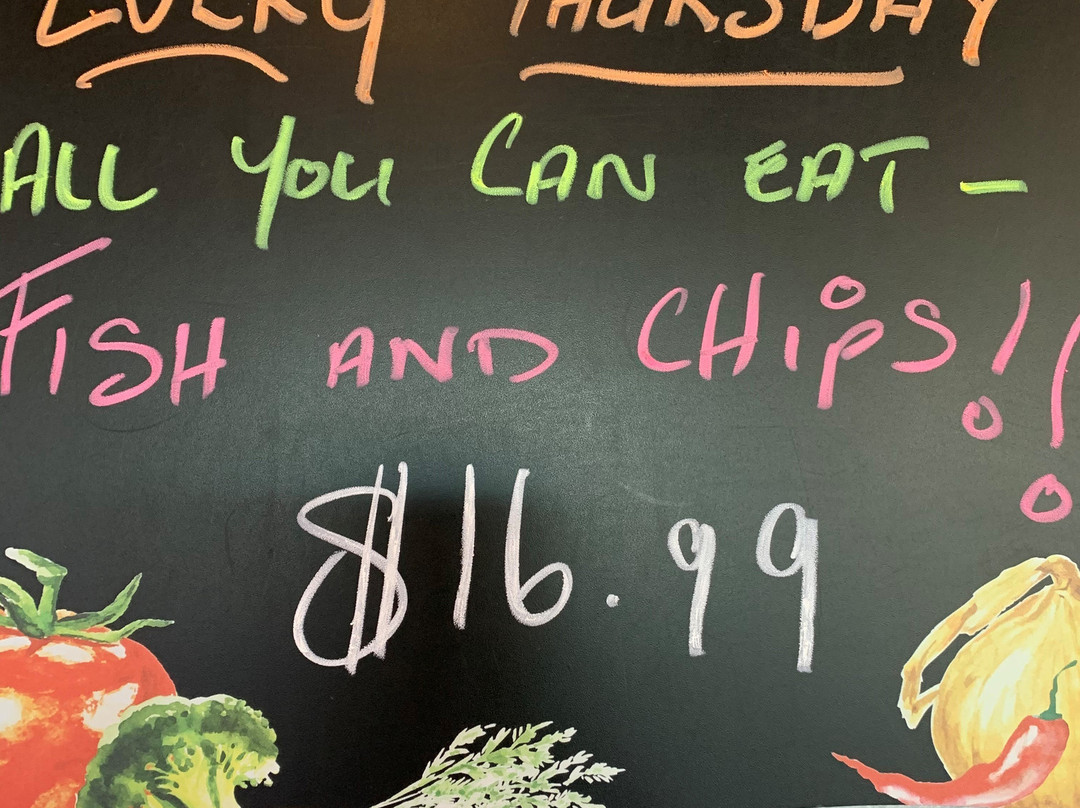 EVERY THURSDAY
ALL YOU CAN EAT -
FISH AND CHiPS!!
$16.99